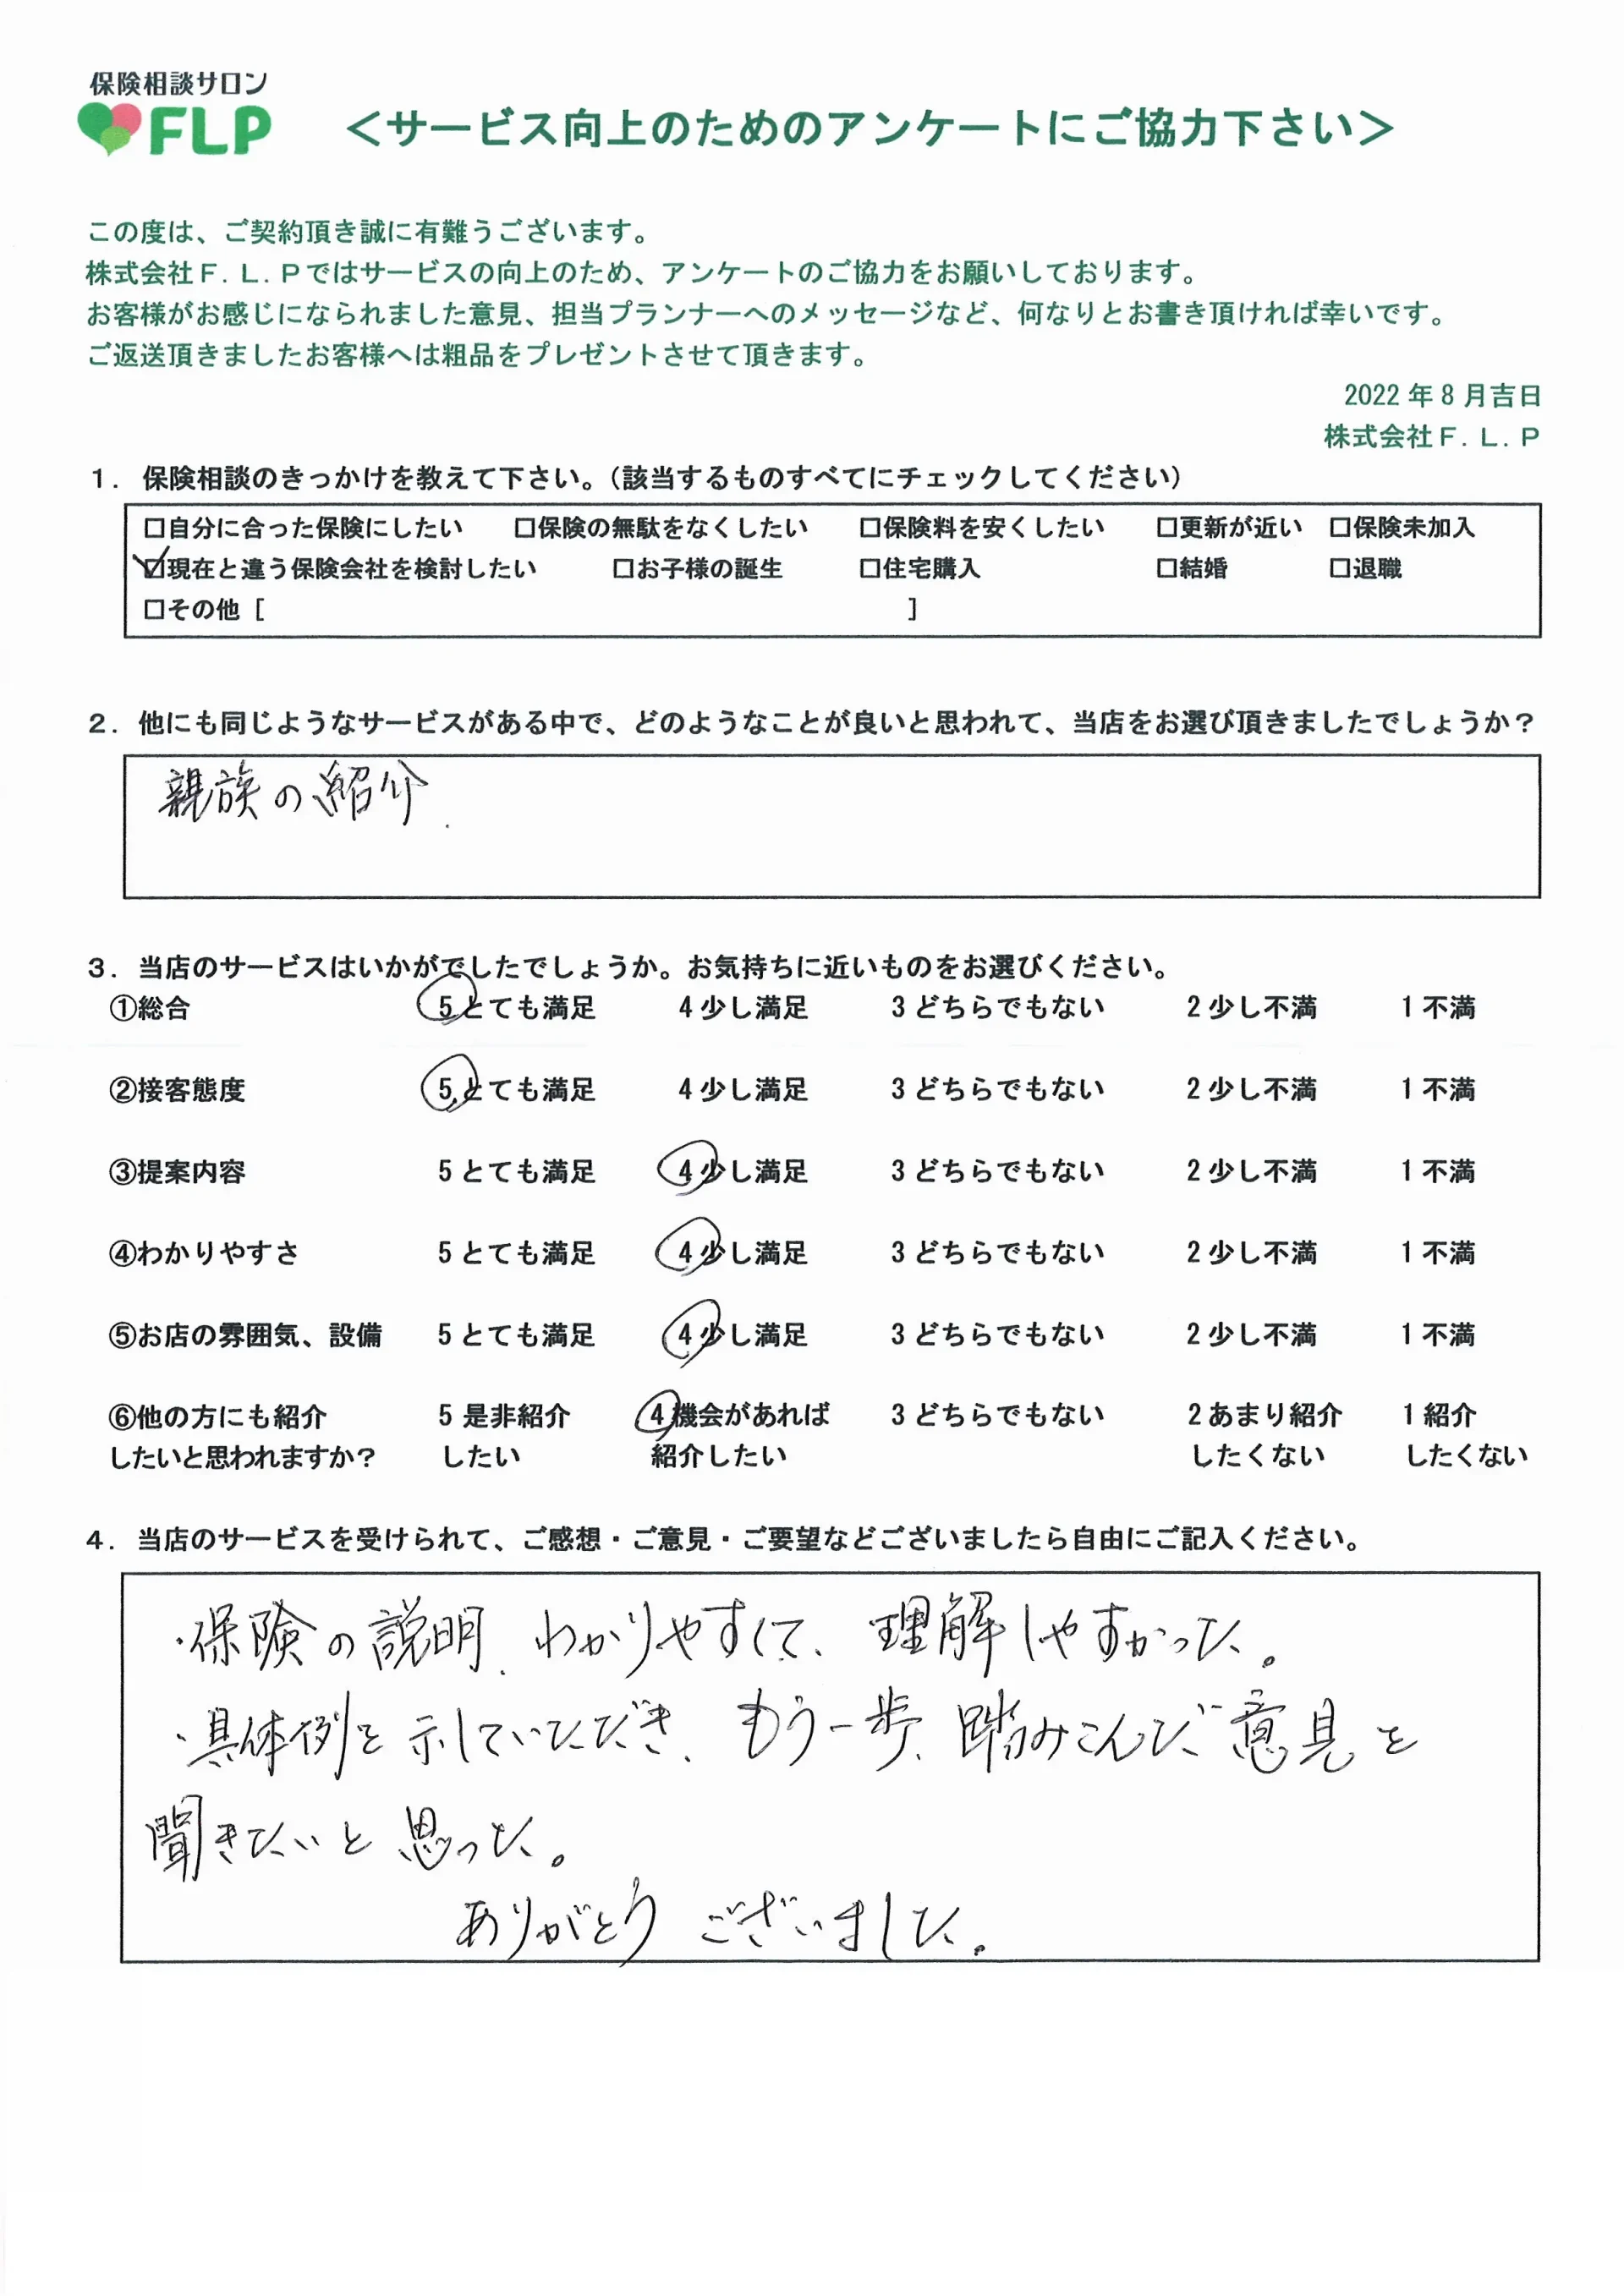 保険相談サロン
FLP
＜サービス向上のためのアンケートにご協力下さい＞
この度は、ご契約頂き誠に有難うございます。
株式会社Ｆ．Ｌ．Ｐではサービスの向上のため、アンケートのご協力をお願いしております。
お客様がお感じになられました意見、担当プランナーへのメッセージなど、何なりとお書き頂ければ幸いです。
ご返送頂きましたお客様へは粗品をプレゼントさせて頂きます。
2022 年 8 月吉日
株式会社Ｆ．Ｌ．Ｐ
１．保険相談のきっかけを教えて下さい。（該当するものすべてにチェックしてください）
□自分に合った保険にしたい □保険の無駄をなくしたい □保険料を安くしたい □更新が近い □保険未加入
☑現在と違う保険会社を検討したい □お子様の誕生 □住宅購入 □結婚 □退職
□その他［ ］
２．他にも同じようなサービスがある中で、どのようなことが良いと思われて、当店をお選び頂きましたでしょうか？
親族の紹介
３．当店のサービスはいかがでしたでしょうか。お気持ちに近いものをお選びください。
①総合 5 とても満足 4 少し満足 3 どちらでもない 2 少し不満 1 不満
②接客態度 5 とても満足 4 少し満足 3 どちらでもない 2 少し不満 1 不満
③提案内容 5 とても満足 4 少し満足 3 どちらでもない 2 少し不満 1 不満
④わかりやすさ 5 とても満足 4 少し満足 3 どちらでもない 2 少し不満 1 不満
⑤お店の雰囲気、設備 5 とても満足 4 少し満足 3 どちらでもない 2 少し不満 1 不満
⑥他の方にも紹介 5 是非紹介 4 機会があれば 3 どちらでもない 2 あまり紹介 1 紹介
したいと思われますか？ したい 紹介したい したくない したくない
４．当店のサービスを受けられて、ご感想・ご意見・ご要望などございましたら自由にご記入ください。
・保険の説明、わかりやすくて、理解しやすかった。
・具体例を示していただき、もう一歩、踏みこんだ意見を
聞きたいと思った。
ありがとうございました。